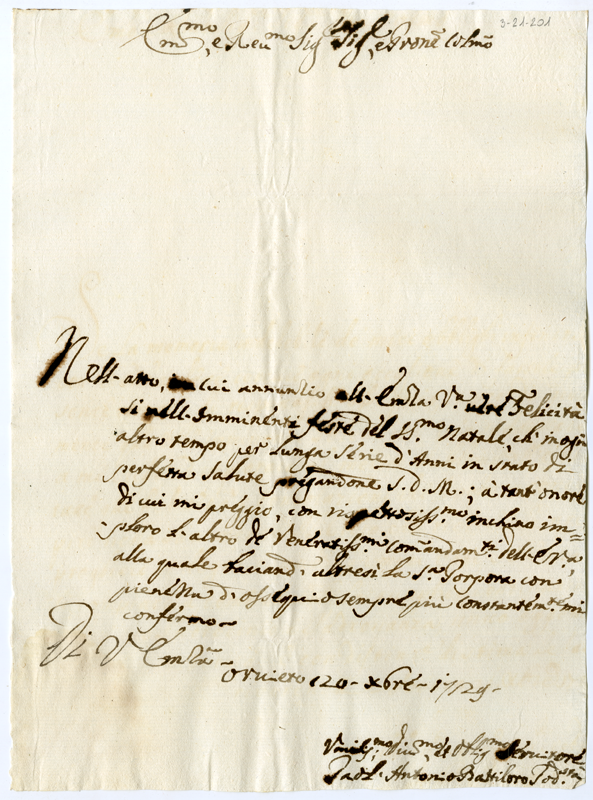 3-21-201
Em.mo, e Reu.mo Sig.r Sig.r, e Prone Colmo
Nell'atto, in cui annunzio all'Em̃za V.a vere Felicità
si nell'Imminenti feste del SS.mo Natale, ch'in ogni
altro tempo per lunga serie d'Anni in stato di
perfetta salute pregandone S. D. M.; à tant'onore
di cui mi preggio, con rispettosiss.mo inchino im=
ploro l'altro de Veneratiss.mi comandam.ti dell'E. V.a
alla quale baciand. altresì la S.a Porpora con
pienezza d'ossequio sempre più constantem.te mi
confermo
Di V. Em̃za
Orvieto 20 Xbre 1729
Umiliss.mo Diu.mo, et Obblig.mo Servitore
Antonio Battiloro